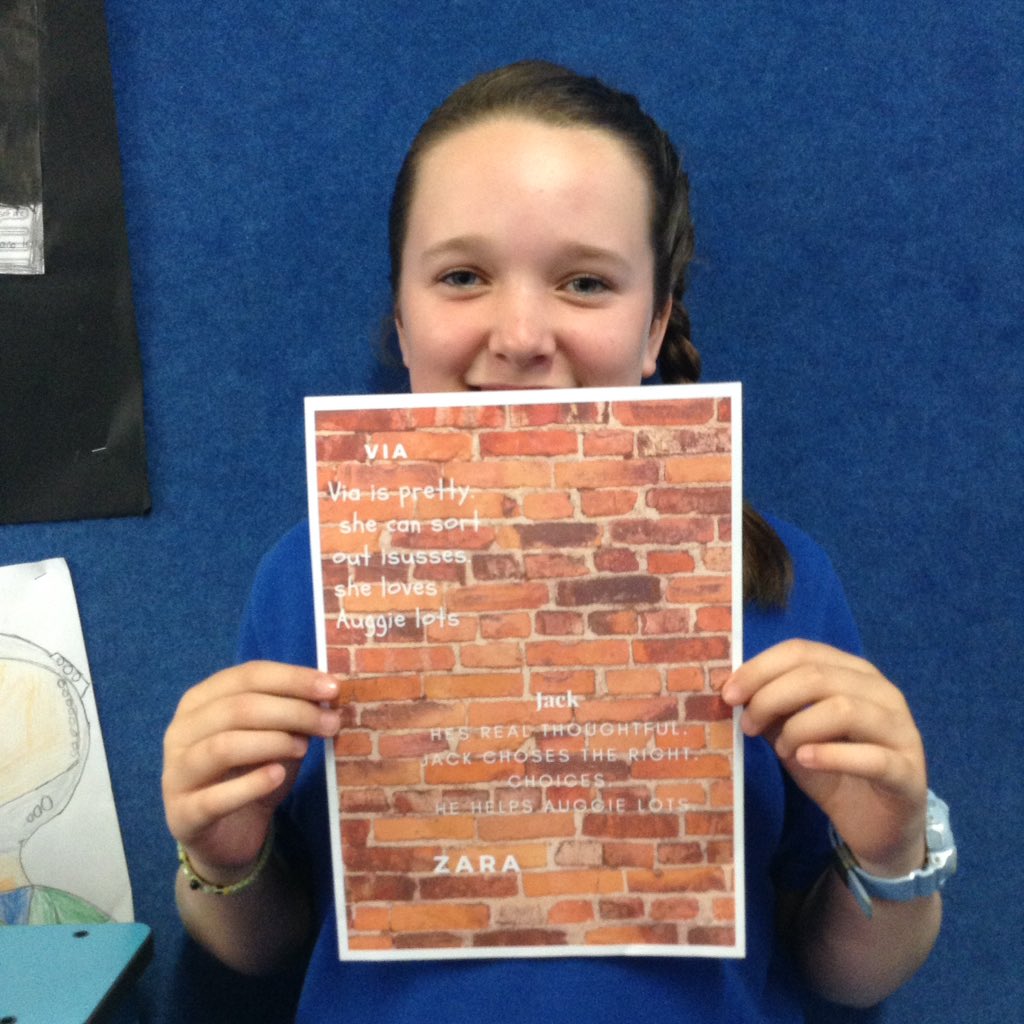 VIA
Via is pretty.
she can sort
out Isusses.
she loves
Auggie lots
Jack
HES REAL THOUGHTFUL.
JACK CHOSES THE RIGHT.
CHOICES
HE HELPS AUGGIE LOTS.
ZARA